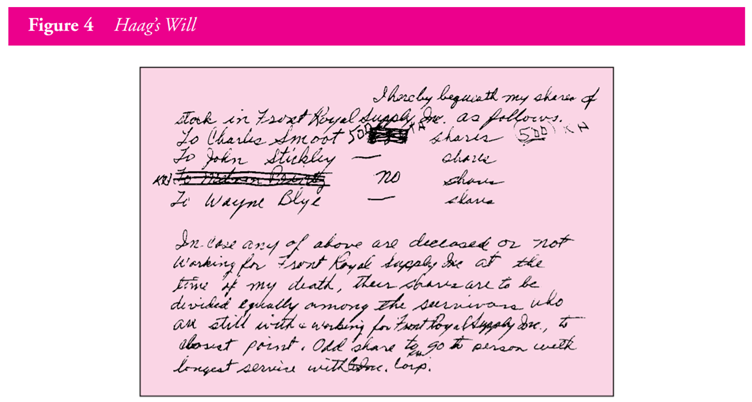 Figure 4 Haag's Will
I hereby bequeath my shares of
stock in Front Royal Supply, Inc. as follows.
To Charles Smoot 500 shares (500) KH
To John Stickley — shares
KH no shares
To Wayne Blye — shares
In case any of above are deceased or not
working for Front Royal Supply Inc at the
time of my death, their shares are to be
divided equally among the survivors who
are still with & working for Front Royal Supply Inc., to
closest point. Odd share to go to person with
longest service with Corp.